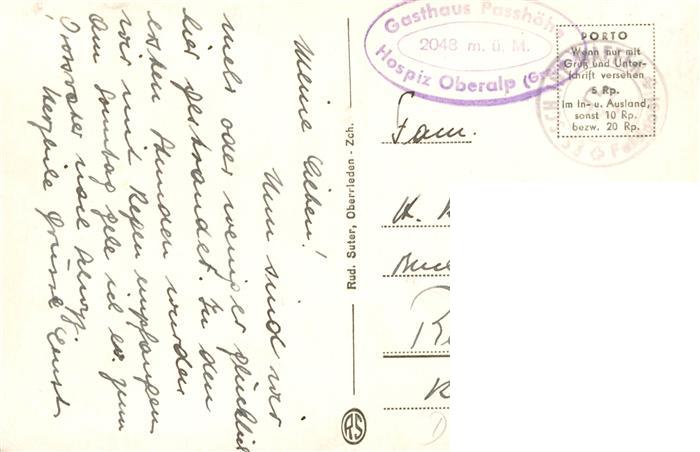 Meine Lieben!
Nun sind wir
mehr oder weniger glücklich
hier gestrandet. In den
ersten Stunden wurden
wir mit Regen empfangen
Am Sonntag gehe ich ev. zum
noch
herzliche Grüsse Ernst
Rud. Suter, Oberrieden - Zch.
RS
Gasthaus Passhöhe
2048 m. ü. M.
Hospiz Oberalp (Gr.)
PORTO
Wenn nur mit
Gruß und Unter-
schrift versehen
5 Rp.
Im In- u. Ausland,
sonst 10 Rp.
bezw. 20 Rp.
Fam.